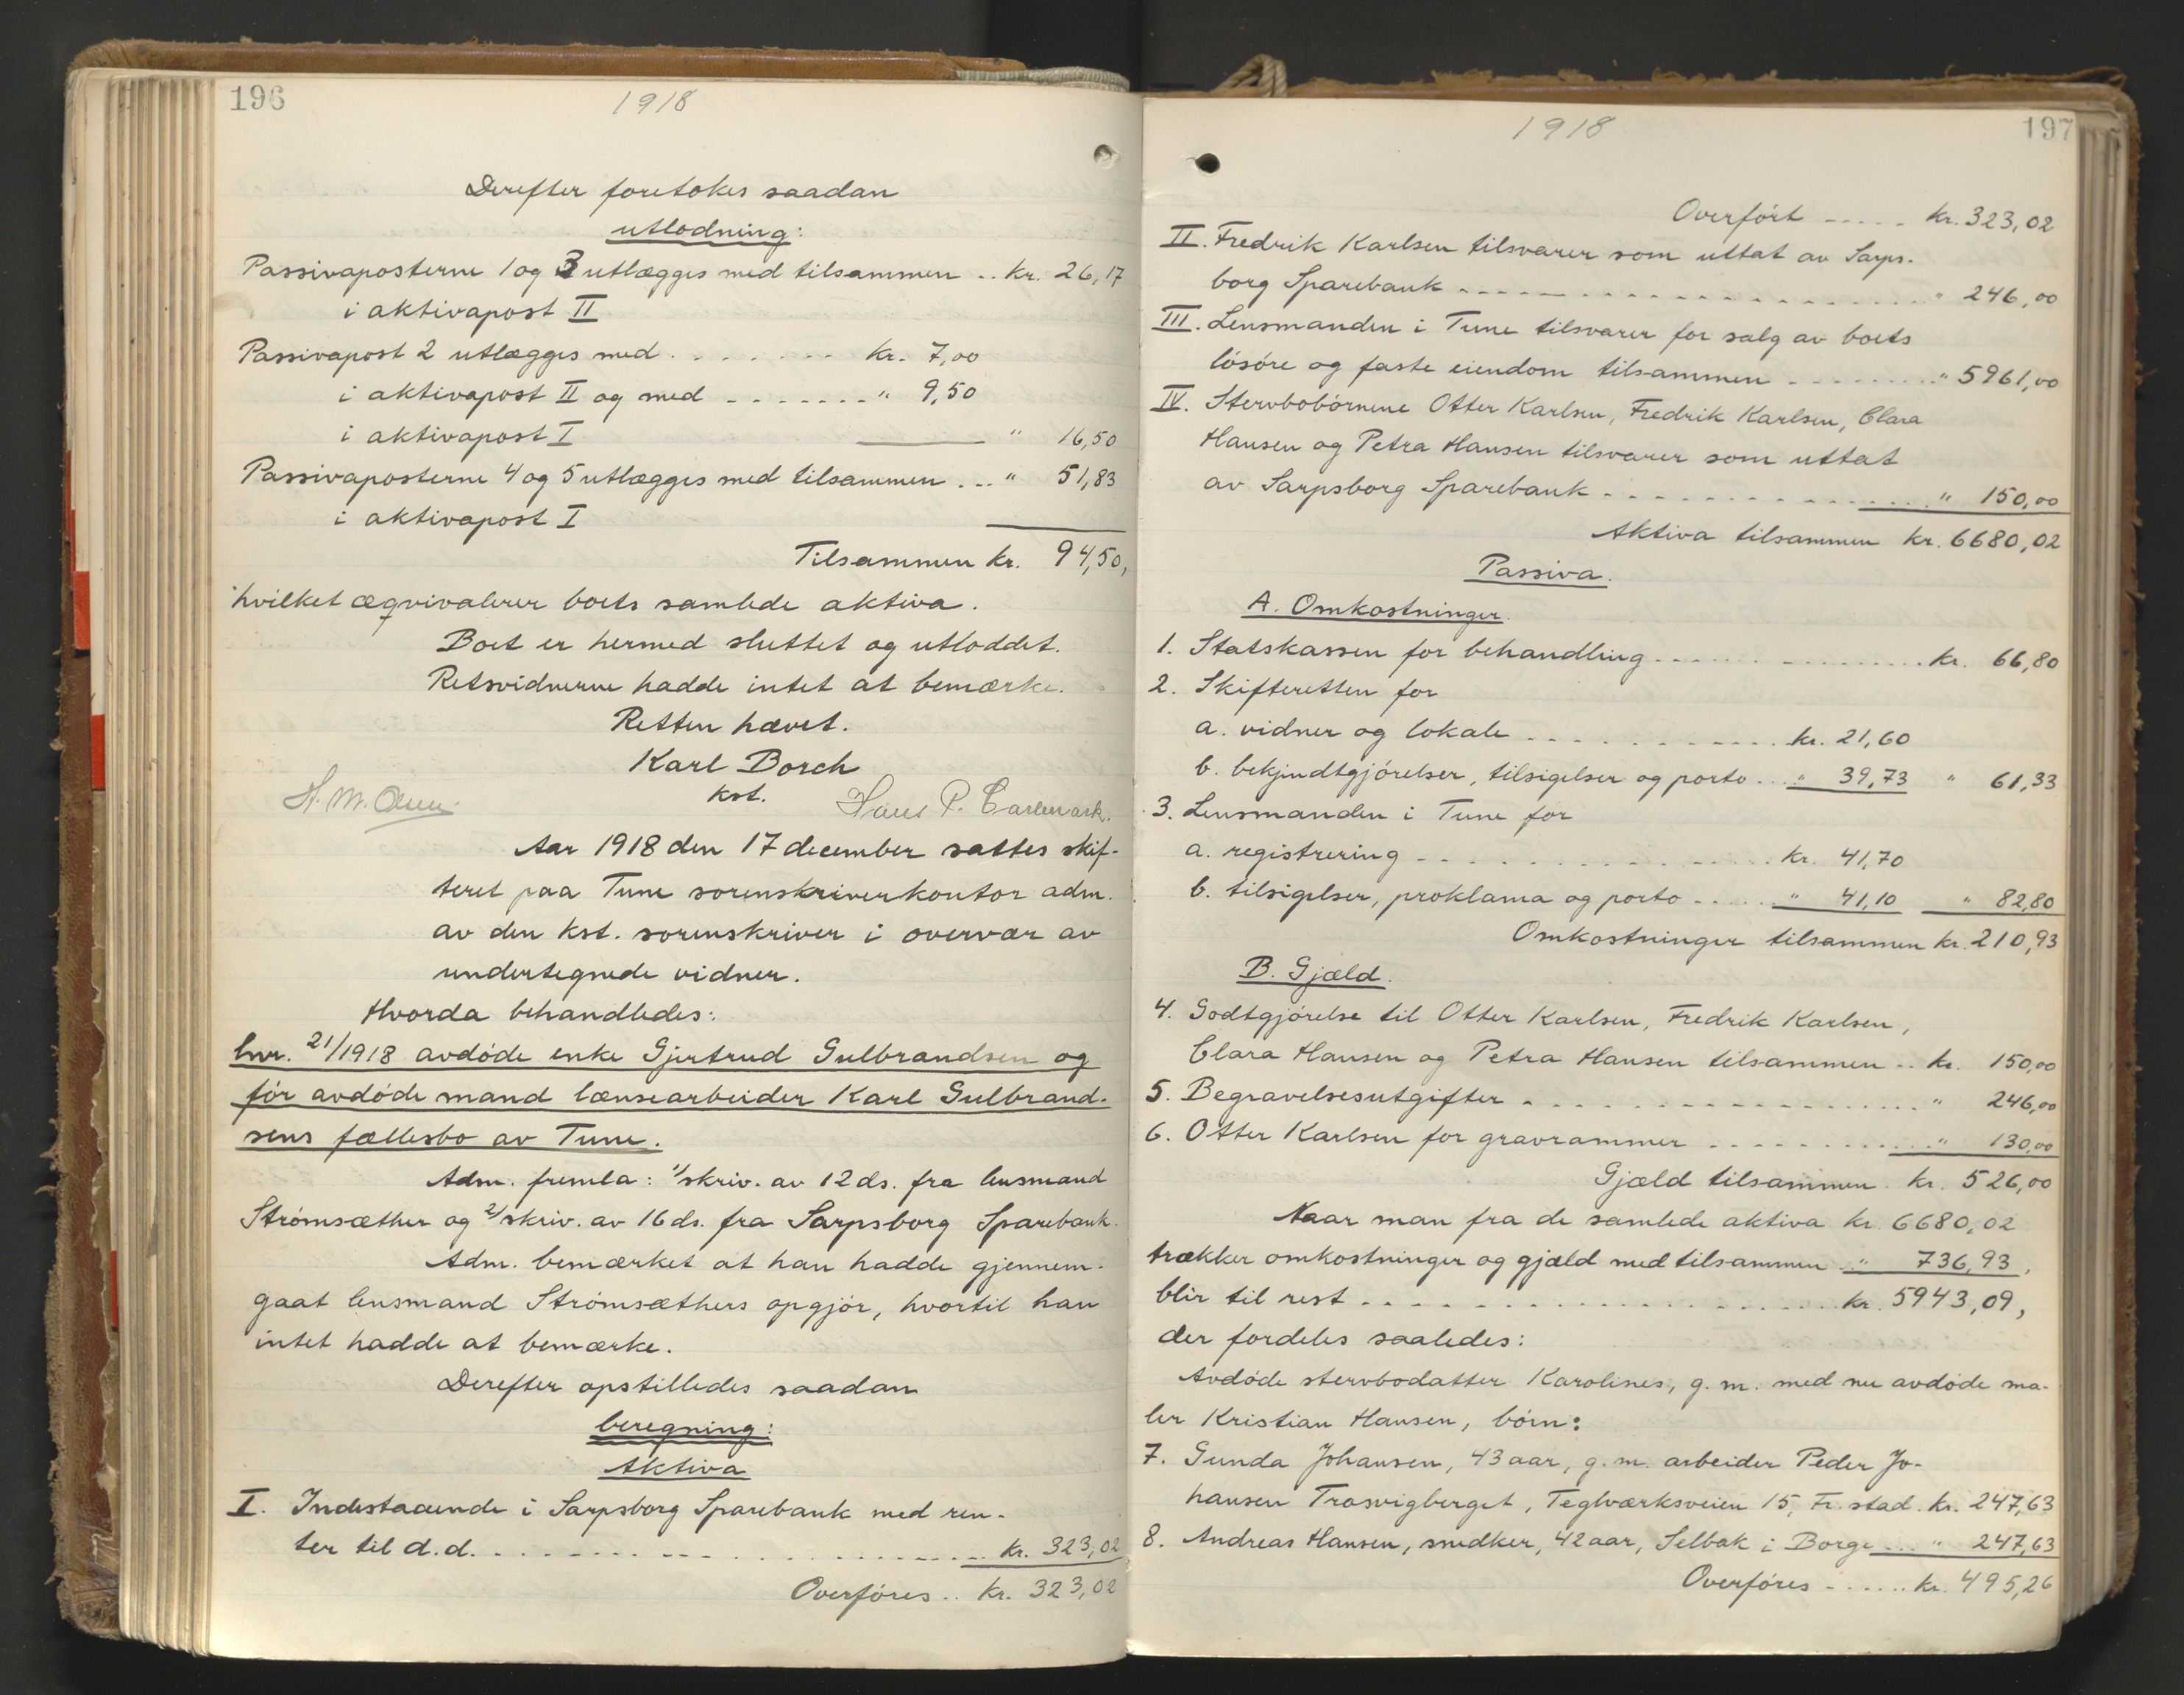 196
1918
Derefter foretokes saadan
utlodning:
Passivaposterne 1 og 3 utlægges med tilsammen .. kr. 26,17
i aktivapost II
Passivapost 2 utlægges med ........ kr. 7,00
i aktivapost II og med ....... " 9,50
i aktivapost I " 16,50
Passivaposterne 4 og 5 utlægges med tilsammen ... " 51,83
i aktivapost I
Tilsammen kr. 94,50,
hvilket æqvivalerer boets samlede aktiva.
Boet er hermed sluttet og utloddet.
Retsvidnerne hadde intet at bemærke.
Retten hævet.
Karl Borch
kst.
H. M. Olsen. Hans P. Carlmark.
Aar 1918 den 17 december sattes skif-
teret paa Tune sorenskriverkontor adm.
av den kst. sorenskriver i overvær av
undertegnede vidner.
Hvorda behandledes:
lnr. 21/1918 avdøde enke Gjertrud Gulbrandsen og
før avdøde mand lænsearbeider Karl Gulbrand-
sens fællesbo av Tune.
Adm. fremla: 1/ skriv. av 12 ds. fra lensmand
Strømsæther og 2/ skriv. av 16 ds. fra Sarpsborg Sparebank.
Adm. bemærket at han hadde gjennem-
gaat lensmand Strømsæthers opgjør, hvortil han
intet hadde at bemærke.
Derefter opstilledes saadan
beregning:
Aktiva
I. Indestaaende i Sarpsborg Sparebank med ren-
ter til d.d. ........ kr. 323,02
Overføres .. kr. 323,02
1918
197
Overført ..... kr. 323,02
II. Fredrik Karlsen tilsvarer som uttat av Sarps-
borg Sparebank ........ " 246,00
III. Lensmanden i Tune tilsvarer for salg av boets
løsøre og faste eiendom tilsammen ........ " 5961,00
IV. Stervbobørnene Otter Karlsen, Fredrik Karlsen, Clara
Hansen og Petra Hansen tilsvarer som uttat
av Sarpsborg Sparebank ........ " 150,00
Aktiva tilsammen kr. 6680,02
Passiva.
A. Omkostninger.
1. Statskassen for behandling ........ kr. 66,80
2. Skifteretten for
a. vidner og lokale ........ kr. 21,60
b. bekjendtgjørelser, tilsigelser og porto ... " 39,73 " 61,33
3. Lensmanden i Tune for
a. registrering ........ kr. 41,70
b. tilsigelser, proklama og porto ...... " 41,10 " 82,80
Omkostninger tilsammen kr. 210,93
B. Gjæld.
4. Godtgjørelse til Otter Karlsen, Fredrik Karlsen,
Clara Hansen og Petra Hansen tilsammen .. kr. 150,00
5. Begravelsesutgifter ........ " 246,00
6. Otter Karlsen for gravrammer ........ " 130,00
Gjæld tilsammen kr. 526,00
Naar man fra de samlede aktiva kr. 6680,02
trækker omkostninger og gjæld med tilsammen " 736,93,
blir til rest ........ kr. 5943,09,
der fordeles saaledes:
Avdøde stervbodatter Karolines, g. m. med nu avdøde ma-
ler Kristian Hansen, børn:
7. Gunda Johansen, 43 aar, g. m. arbeider Peder Jo-
hansen Trosvigberget, Teglværksveien 15, Fr. stad. kr. 247,63
8. Andreas Hansen, snedker, 42 aar, Selbak i Borge ... " 247,63
Overføres ...... kr. 495,26